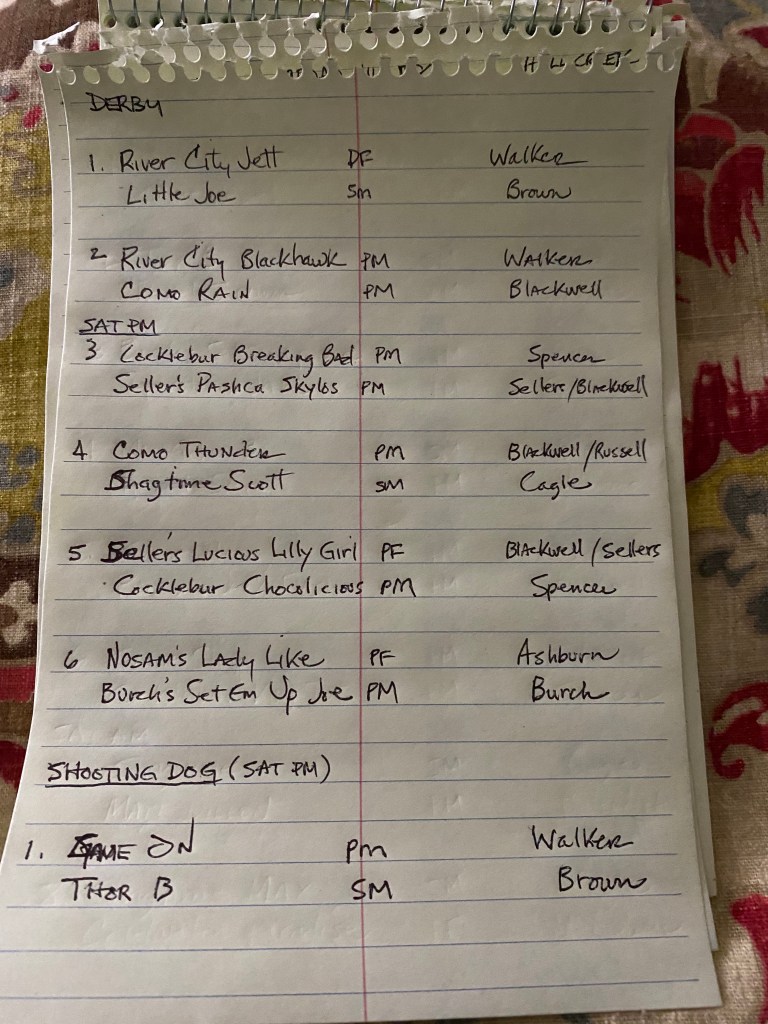 DERBY
1. River City Jett PF Walker
Little Joe SM Brown
2 River City Blackhawk PM Walker
Como Rain PM Blackwell
SAT PM
3 Cocklebur Breaking Bad PM Spencer
Seller's Pashca Skylos PM Sellers/Blackwell
4 Como Thunder PM Blackwell/Russell
Shagtime Scott SM Cagle
5 Sellers Lucious Lilly Girl PF Blackwell/Sellers
Cocklebur Chocolicious PM Spencer
6 Nosam's Lady Like PF Ashburn
Burch's Set Em Up Joe PM Burch
SHOOTING DOG (SAT PM)
1. GAME ON PM Walker
THOR B SM Brown